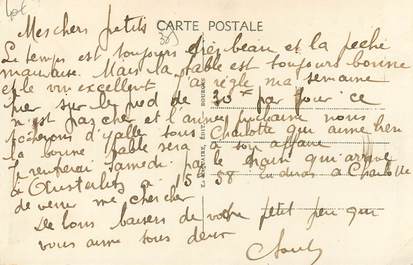 lot
CARTE POSTALE
Mes chers petits
Le temps est toujours très beau et la peche
mauvaise. Mais la table est toujours bonne
et le vin excellent j'ai réglé ma semaine
hier sur le pied de 30 par jour ce
n'est pas cher et l'année prochaine nous
d'y aller tous Charlotte qui aime bien
la bonne table sera à son affaire
Je rentrerai samedi par le train qui arrive
à Austerlitz à 15 58 tu diras à Charlotte
de venir me chercher
De bons baisers de votre petit père qui
vous aime tous deux